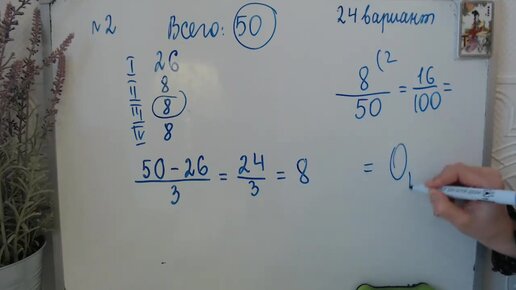 №2 Всего: 50 24 вариант
I 26
II 8
III 8
IV 8
50-26/3 = 24/3 = 8
8(2/50 = 16/100 =
= 0,